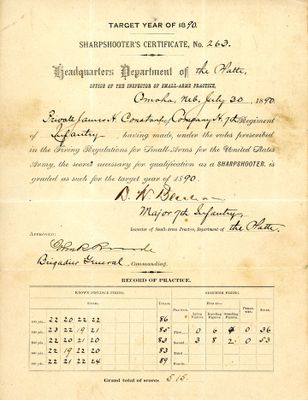 TARGET YEAR OF 1890.
SHARPSHOOTER'S CERTIFICATE, No. 263.
Headquarters Department of the Platte,
OFFICE OF THE INSPECTOR OF SMALL-ARMS PRACTICE,
Omaha, Neb. July 30, 1890.
Private James H. Constante, Company H, 7th Regiment
of Infantry, having made, under the rules prescribed
in the Firing Regulations for Small-Arms for the United States
Army, the score necessary for qualification as a SHARPSHOOTER, is
graded as such for the target year of 1890.
Major 7th Infantry,
Inspector of Small-Arms Practice, Department of the Platte.
APPROVED:
Brigadier General, Commanding.
RECORD OF PRACTICE.
KNOWN DISTANCE FIRING. SKIRMISH FIRING.
22 20 22 22 86
23 22 19 21 85 First 0 6 4 0 36
22 20 21 20 83 Second 3 8 2 0 53
22 19 22 20 83 Third
22 21 22 24 89
Grand total of scores: 515.